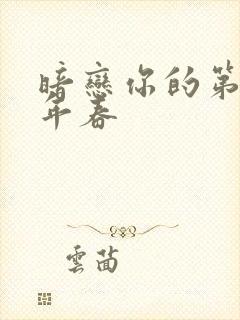 暗戀你的第
年春
雲茴